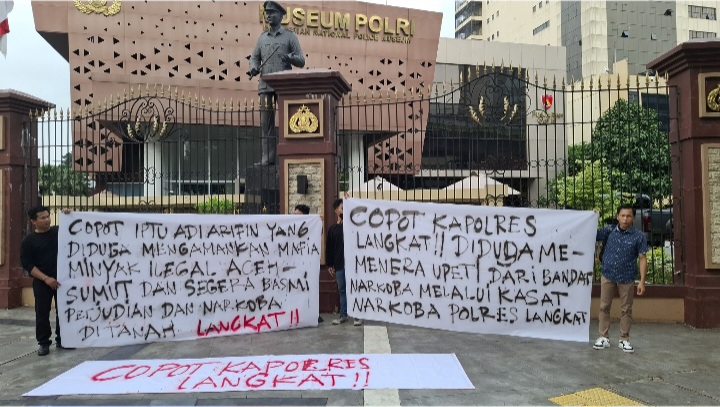 MUSEUM POLRI
INDONESIAN NATIONAL POLICE MUSEUM
COPOT IPTU ADI ARIFIN YANG
DIDUGA MENGAMANKAN MAFIA
MINYAK ILEGAL ACEH-
SUMUT DAN SEGERA BASMI
PERJUDIAN DAN NARKOBA
DI TANAH LANGKAT!!
COPOT KAPOLRES
LANGKAT!! DIDUGA ME-
MENERA UPETI DARI BANDAR
NARKOBA MELALUI KASAT
NARKOBA POLRES LANGKAT
COPOT KAPOLRES
LANGKAT!!